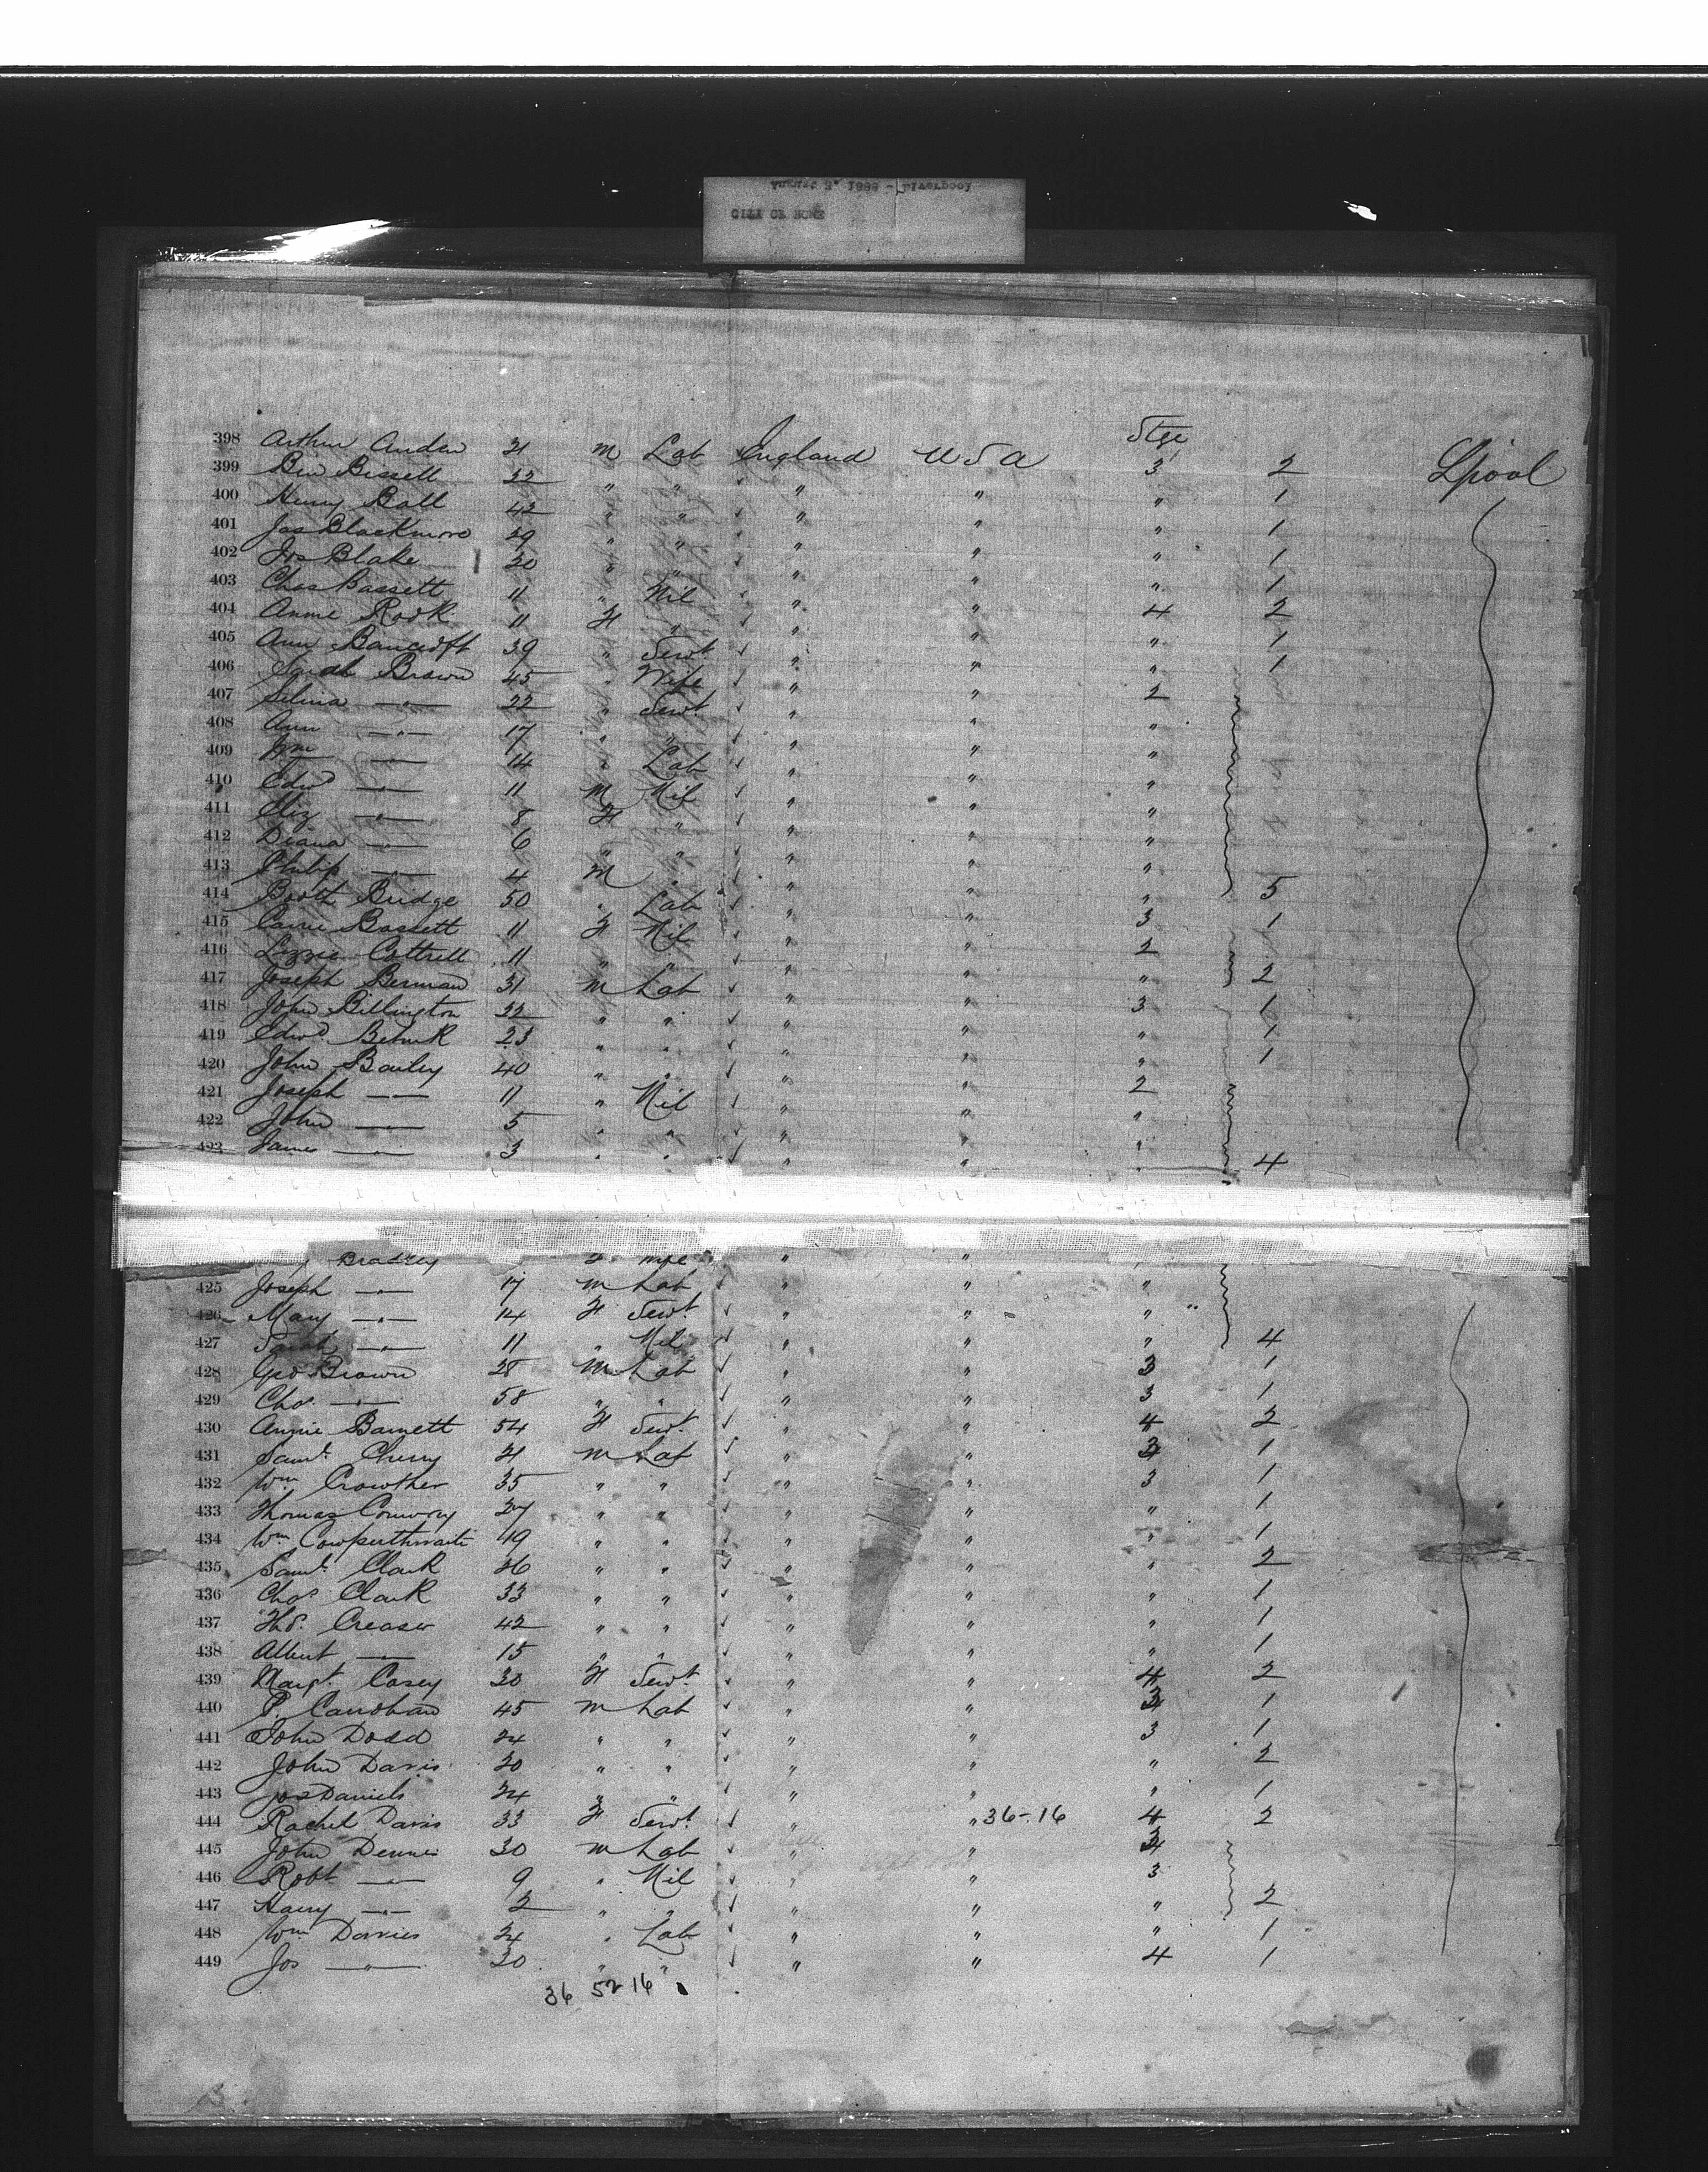 CITY OF ROME
398 Arthur Auden 21 M Lab England U S A Stge 3 2 L'pool
399 Ben Bissell 22 " " " " " 1
400 Henry Ball 42 " " " " " 1
401 Jas Blackmore 29 " " " " " 1
402 Jos Blake 20 " " " " " 1
403 Chas Bassett 11 " Nil " " 4 2
404 Annie Rook 11 F " " " " 1
405 Ann Bancroft 39 " Servt " " " 1
406 Sarah Brown 45 " Wife " " 2
407 Selina —"— 22 " Servt " " "
408 Ann —"— 17 " " " " "
409 —"— 14 " Lab " " "
410 Edwd —"— 11 M Nil " " "
411 Eliz —"— 8 F " " " "
412 Diana —"— 6 " " " " "
413 Philip —"— 4 M " " " " 5
414 Booth Bridge 50 " Lab " " 3 1
415 Carrie Bassett 11 F Nil " " 2
416 Lizzie Cottrell 11 " " " " " 2
417 Joseph Berman 31 M Lab " " 3 1
418 John Billington 22 " " " " " 1
419 Edwd 23 " " " " " 1
420 John Bailey 40 " " " " 2
421 Joseph —"— 11 " Nil " " "
422 John —"— 5 " " " " "
423 James —"— 3 " " " " " 4
Bradley F Wife " " "
425 Joseph —"— 17 M Lab " " "
426 Mary —"— 14 F Servt " " "
427 Sarah —"— 11 " Nil " " " 4
428 Geo Brown 28 M Lab " " 3 1
429 Chas —"— 58 " " " " 3 1
430 Annie Barnett 54 F Servt " " 4 2
431 Saml Cherry 21 M Lab " " 3 1
432 Wm Crowther 35 " " " " 3 1
433 Thomas Conway 27 " " " " " 1
434 Wm Cowperthwaite 19 " " " " " 1
435 Saml Clark 26 " " " " " 2
436 Chas Clark 33 " " " " " 1
437 Thos Creaser 42 " " " " " 1
438 Albert —"— 15 " " " " " 1
439 Margt Casey 30 F Servt " " 4 2
440 P. 45 M Lab " " 3 1
441 John Dodd 24 " " " " 3 1
442 John Davis 20 " " " " " 2
443 Jos Daniels 24 " " " " " 1
444 Rachel Davis 33 F Servt " " 36-16 4 2
445 John Dennis 30 M Lab " " 3
446 Robt —"— 9 " Nil " " 3
447 Harry —"— 2 " " " " " 2
448 Wm Davies 24 " Lab " " " 1
449 Jos —"— 20 " " " " 4 1
36 52 16